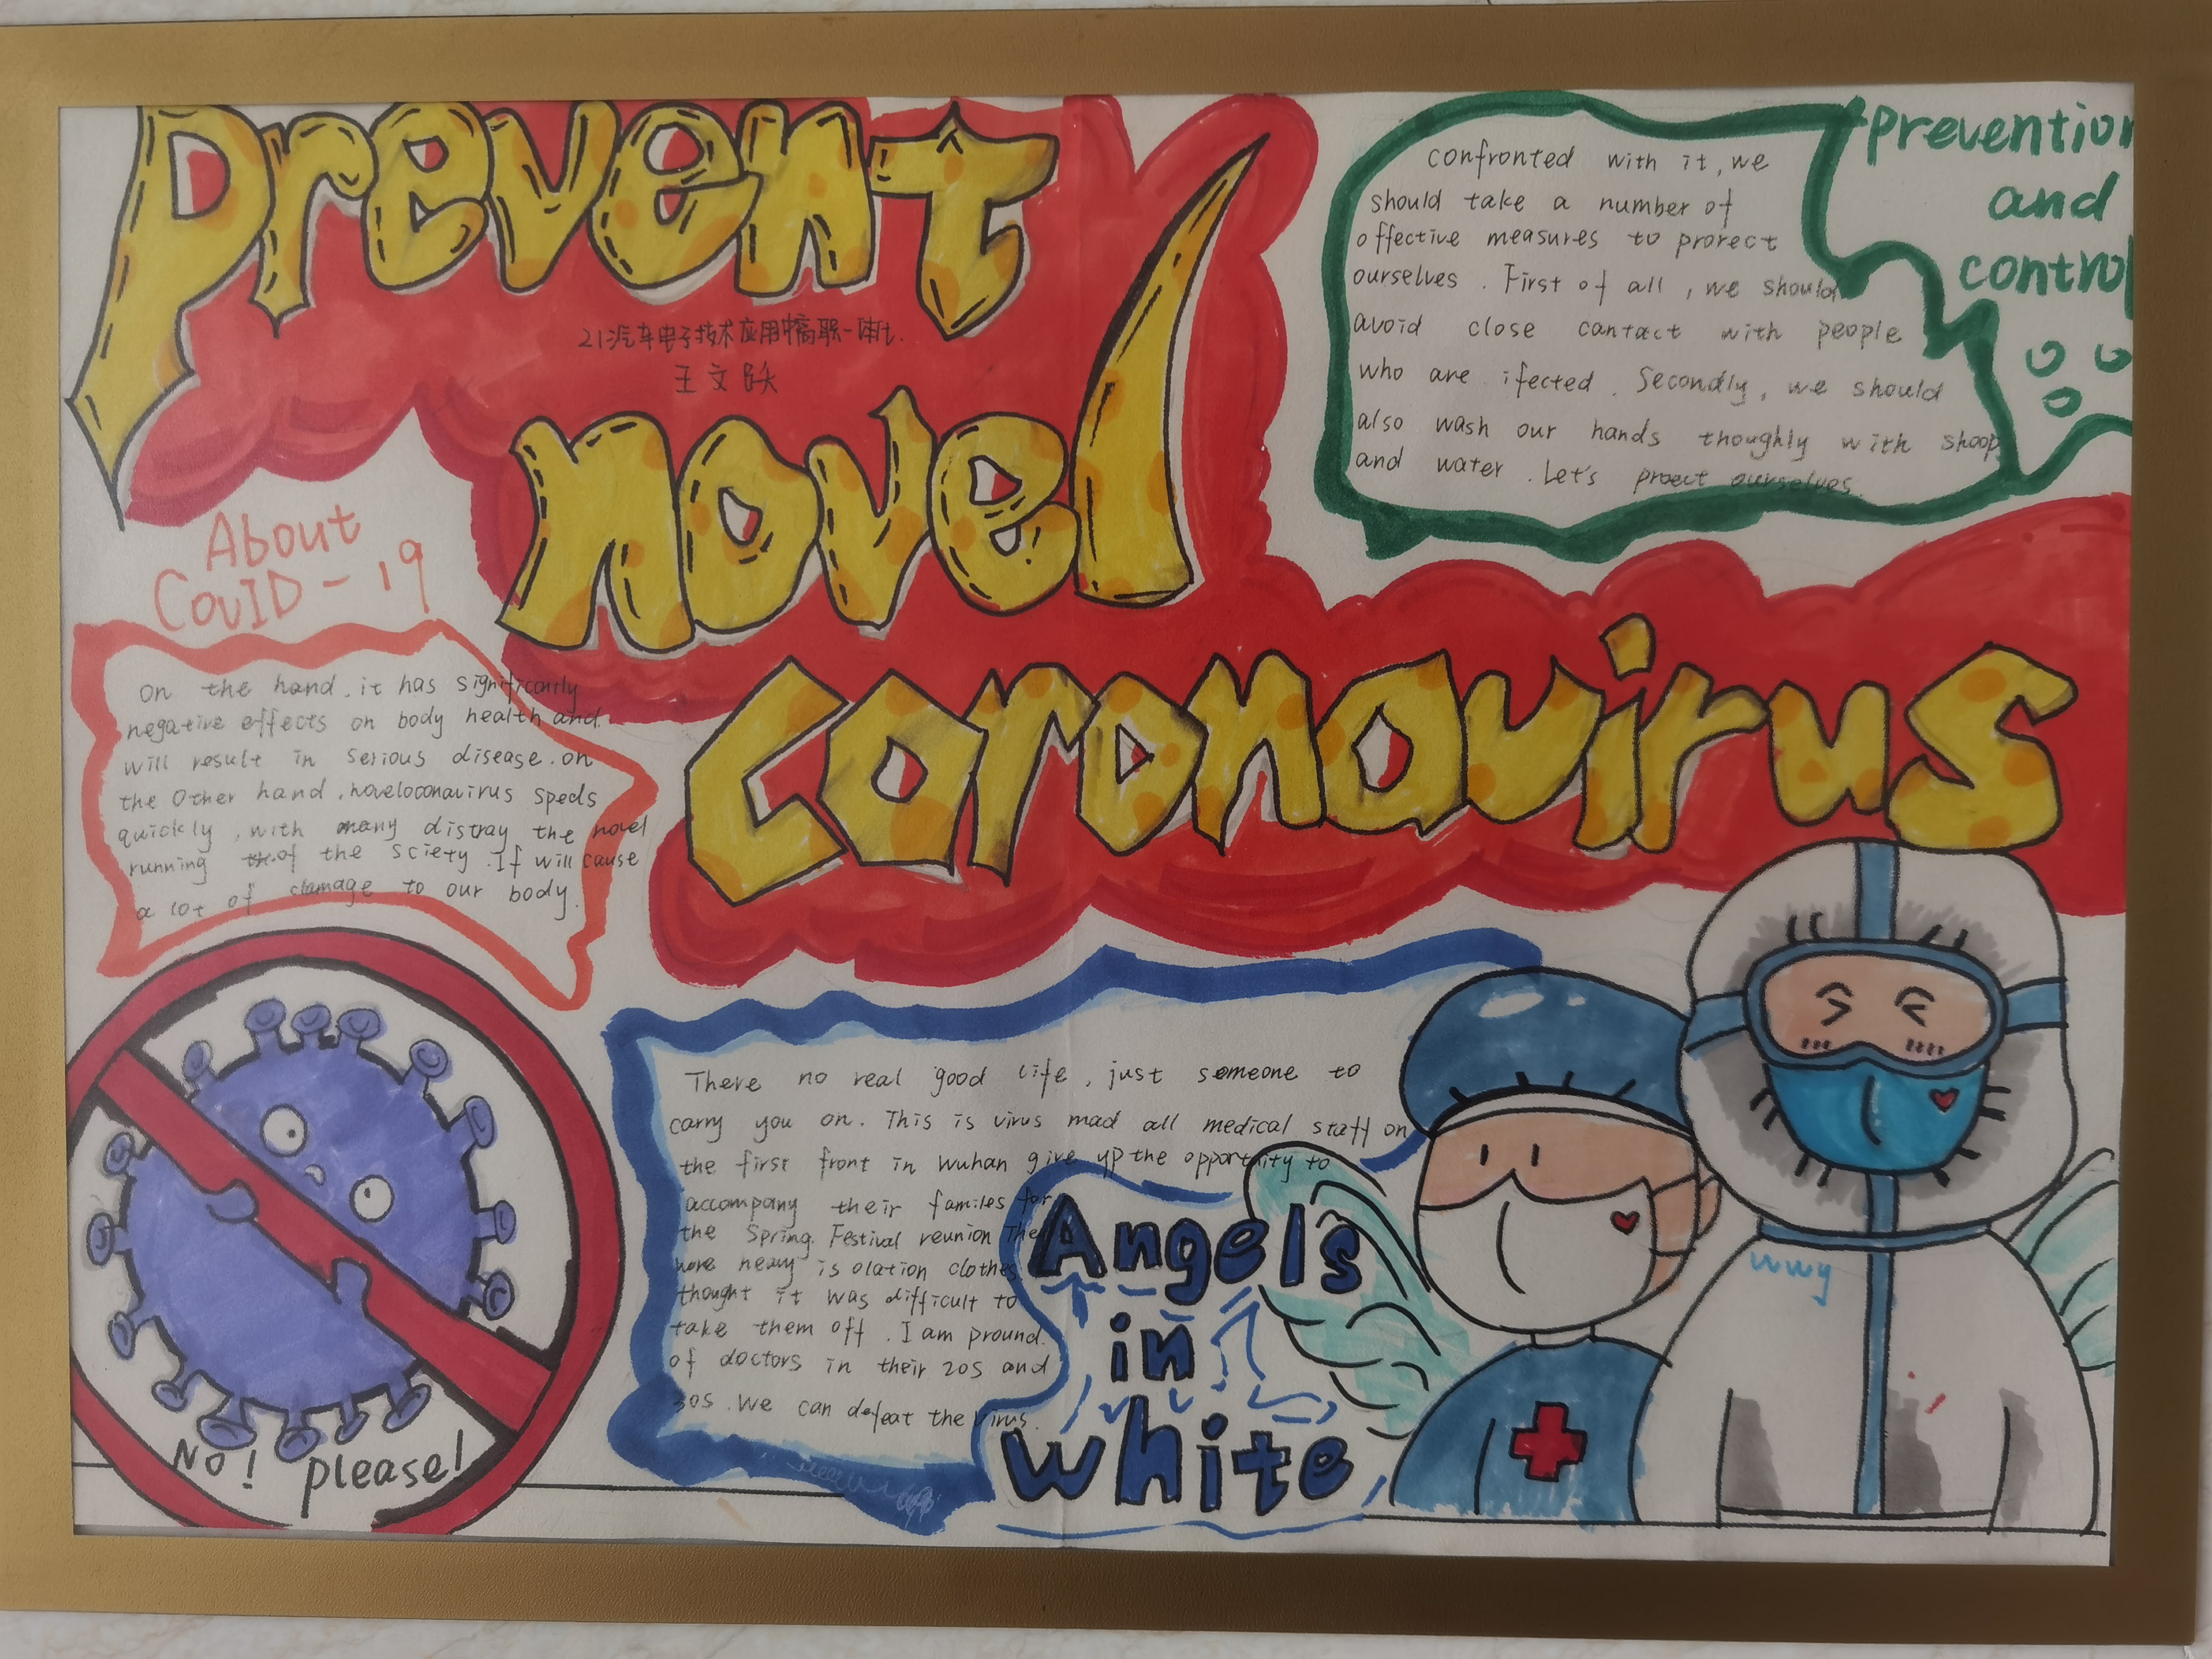 prevent
novel
coronavirus
21汽车电子技术应用中高职一体化
王文跃
prevention
and
control
confronted with it, we
should take a number of
offective measures to prorect
ourselves. First of all, we should
avoid close contact with people
who are ifected. Secondly, we should
also wash our hands thoughly with shoop
and water. Let's proect ourselves.
About
CovID-19
On the hand, it has significantly
negative effects on body health and
will result in serious disease. on
the Other hand, noveloconavirus speds
quickly, with many distray the novel
running of the sciety. If will cause
a lot of damage to our body.
No! please!
There no real good life, just someone to
carry you on. This is virus mad all medical staff on
the first front in wuhan give yp the opportnity to
accompany their familes for
the Spring Festival reunion They
wore heavy isolation clothes
thought it was difficult to
take them off. I am pround
of doctors in their 20s and
30s. We can defeat the virus.
Angels
in
white
wwy